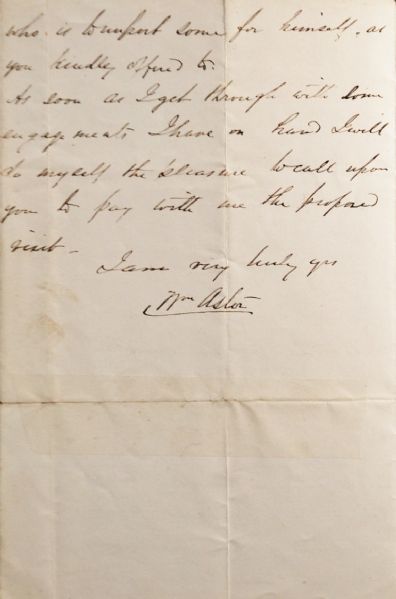 who is to import some for himself, as
you kindly offered to.
As soon as I get through with some
engagements I have on hand I will
do myself the pleasure to call upon
you to pay with me the proposed
visit -
I am very truly yrs
Wm Astor